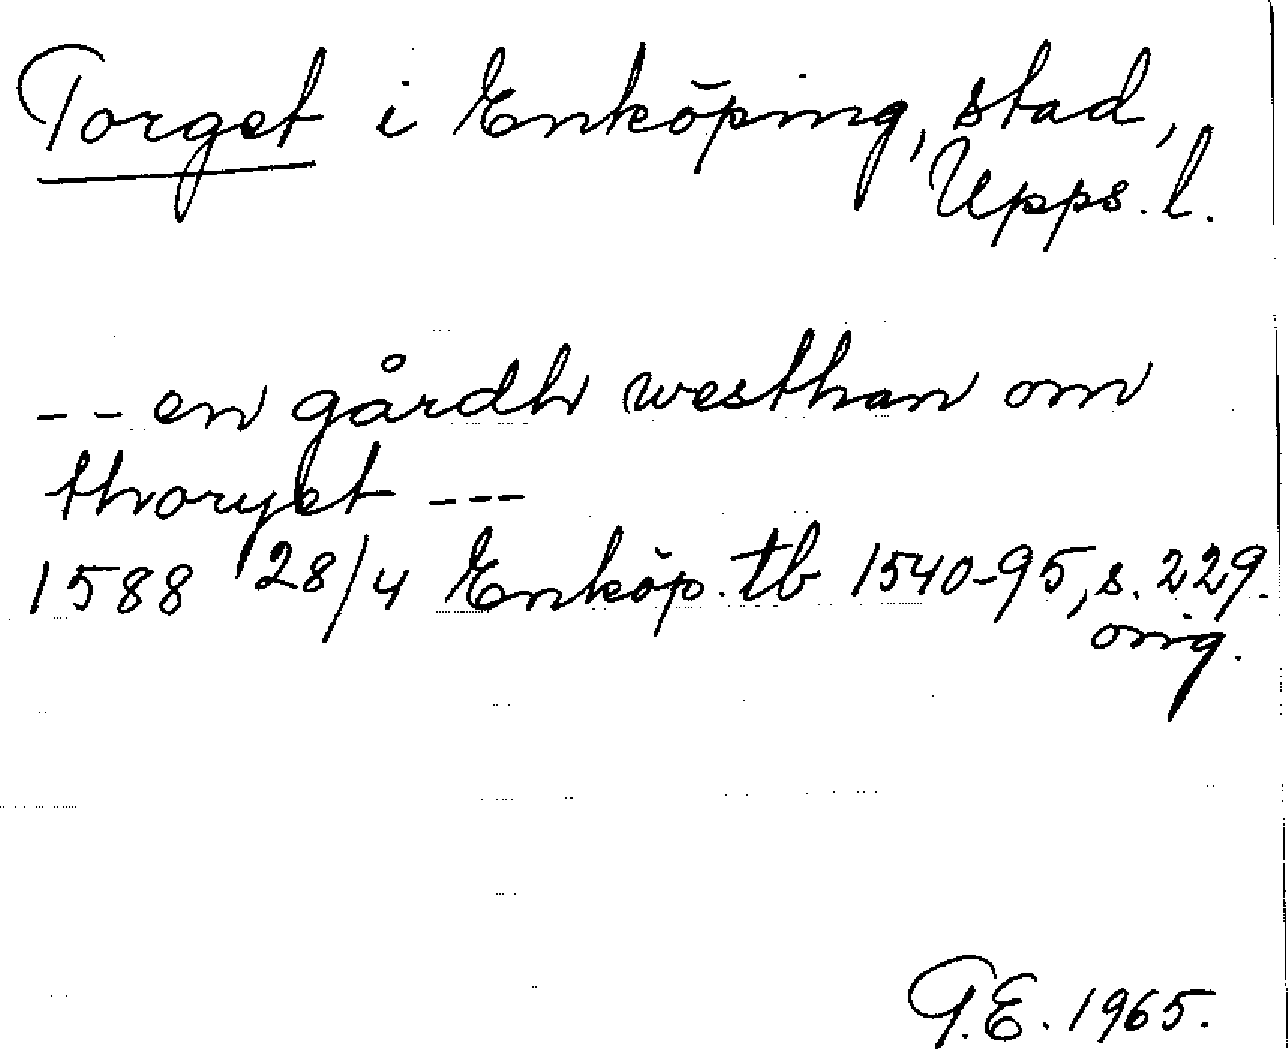 Torget i Enköping, stad,
Upps. l.
-- en gårdh westhan om
thorget ---
1588 28/4 Enköp. tb 1540-95, s. 229.
orig.
G.E. 1965.